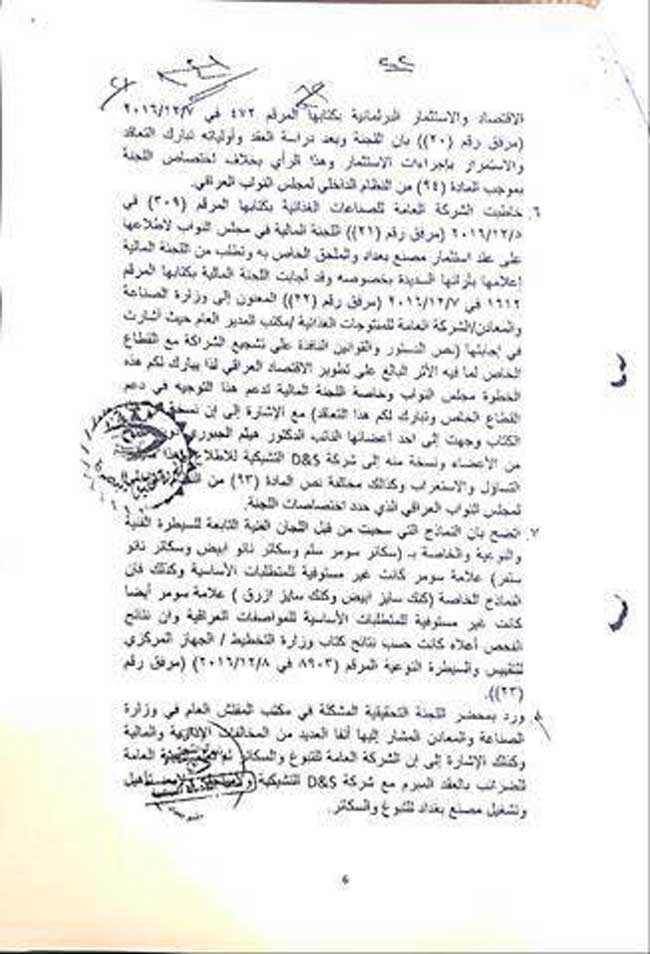 الاقتصاد والاستثمار البرلمانية بكتابها المرقم ٤٧٢ في ٢٠١٦/١٢/٧
(مرفق رقم (٢٠)) بان اللجنة وبعد دراسة العقد وأولياته تبارك التعاقد
والاستمرار بإجراءات الاستثمار وهذا الرأي بخلاف اختصاص اللجنة
بموجب المادة (٩٤) من النظام الداخلي لمجلس النواب العراقي.
٦. خاطبت الشركة العامة للصناعات الغذائية بكتابها المرقم (٣٠٩) في
٢٠١٦/١٢/٥ (مرفق رقم (٢١)) اللجنة المالية في مجلس النواب لاطلاعها
على عقد استثمار مصنع بغداد والملحق الخاص به وتطلب من اللجنة المالية
إعلامها بآرائها السديدة بخصوصه وقد أجابت اللجنة المالية بكتابها المرقم
١٦١٢ في ٢٠١٦/١٢/٧ (مرفق رقم (٢٢)) المعنون إلى وزارة الصناعة
والمعادن/الشركة العامة للمنتوجات الغذائية /مكتب المدير العام حيث أشارت
في إجابتها (نص الدستور والقوانين النافذة على تشجيع الشراكة مع القطاع
الخاص لما فيه الأثر البالغ على تطوير الاقتصاد العراقي لذا يبارك لكم هذه
الخطوة مجلس النواب وخاصة اللجنة المالية لدعم هذا التوجيه في دعم
القطاع الخاص وتبارك لكم هذا التعاقد) مع الإشارة إلى إن نسخة
الكتاب وجهت إلى احد أعضائها النائب الدكتور هيثم الجبوري
من الأعضاء ونسخة منه إلى شركة D&S التشيكية للاطلاع
التساؤل والاستغراب وكذلك مخالفة نص المادة (٩٣) من
لمجلس النواب العراقي الذي حدد اختصاصات اللجنة.
٧. اتضح بان النماذج التي سحبت من قبل اللجان الفنية التابعة للسيطرة الفنية
والنوعية والخاصة بـ (سكائر سومر سلم وسكائر نانو ابيض وسكائر نانو
) علامة سومر كانت غير مستوفية للمتطلبات الأساسية وكذلك فان
النماذج الخاصة (كنك سايز ابيض وكنك سايز ازرق) علامة سومر أيضا
كانت غير مستوفية للمتطلبات الأساسية للمواصفات العراقية وان نتائج
الفحص أعلاه كانت حسب نتائج كتاب وزارة التخطيط / الجهاز المركزي
للتقييس والسيطرة النوعية المرقم (٨٩٠٣ في ٢٠١٦/١٢/٨) (مرفق رقم
(٢٣)).
٨. ورد بمحضر اللجنة التحقيقية المشكلة في مكتب المفتش العام في وزارة
الصناعة والمعادن المشار إليها أنفا العديد من المخالفات الإدارية والمالية
وكذلك الإشارة إلى إن الشركة العامة للتبوغ والسكائر لم العامة
للضرائب بالعقد المبرم مع شركة D&S التشيكية تأهيل
وتشغيل مصنع بغداد للتبوغ والسكائر.
6